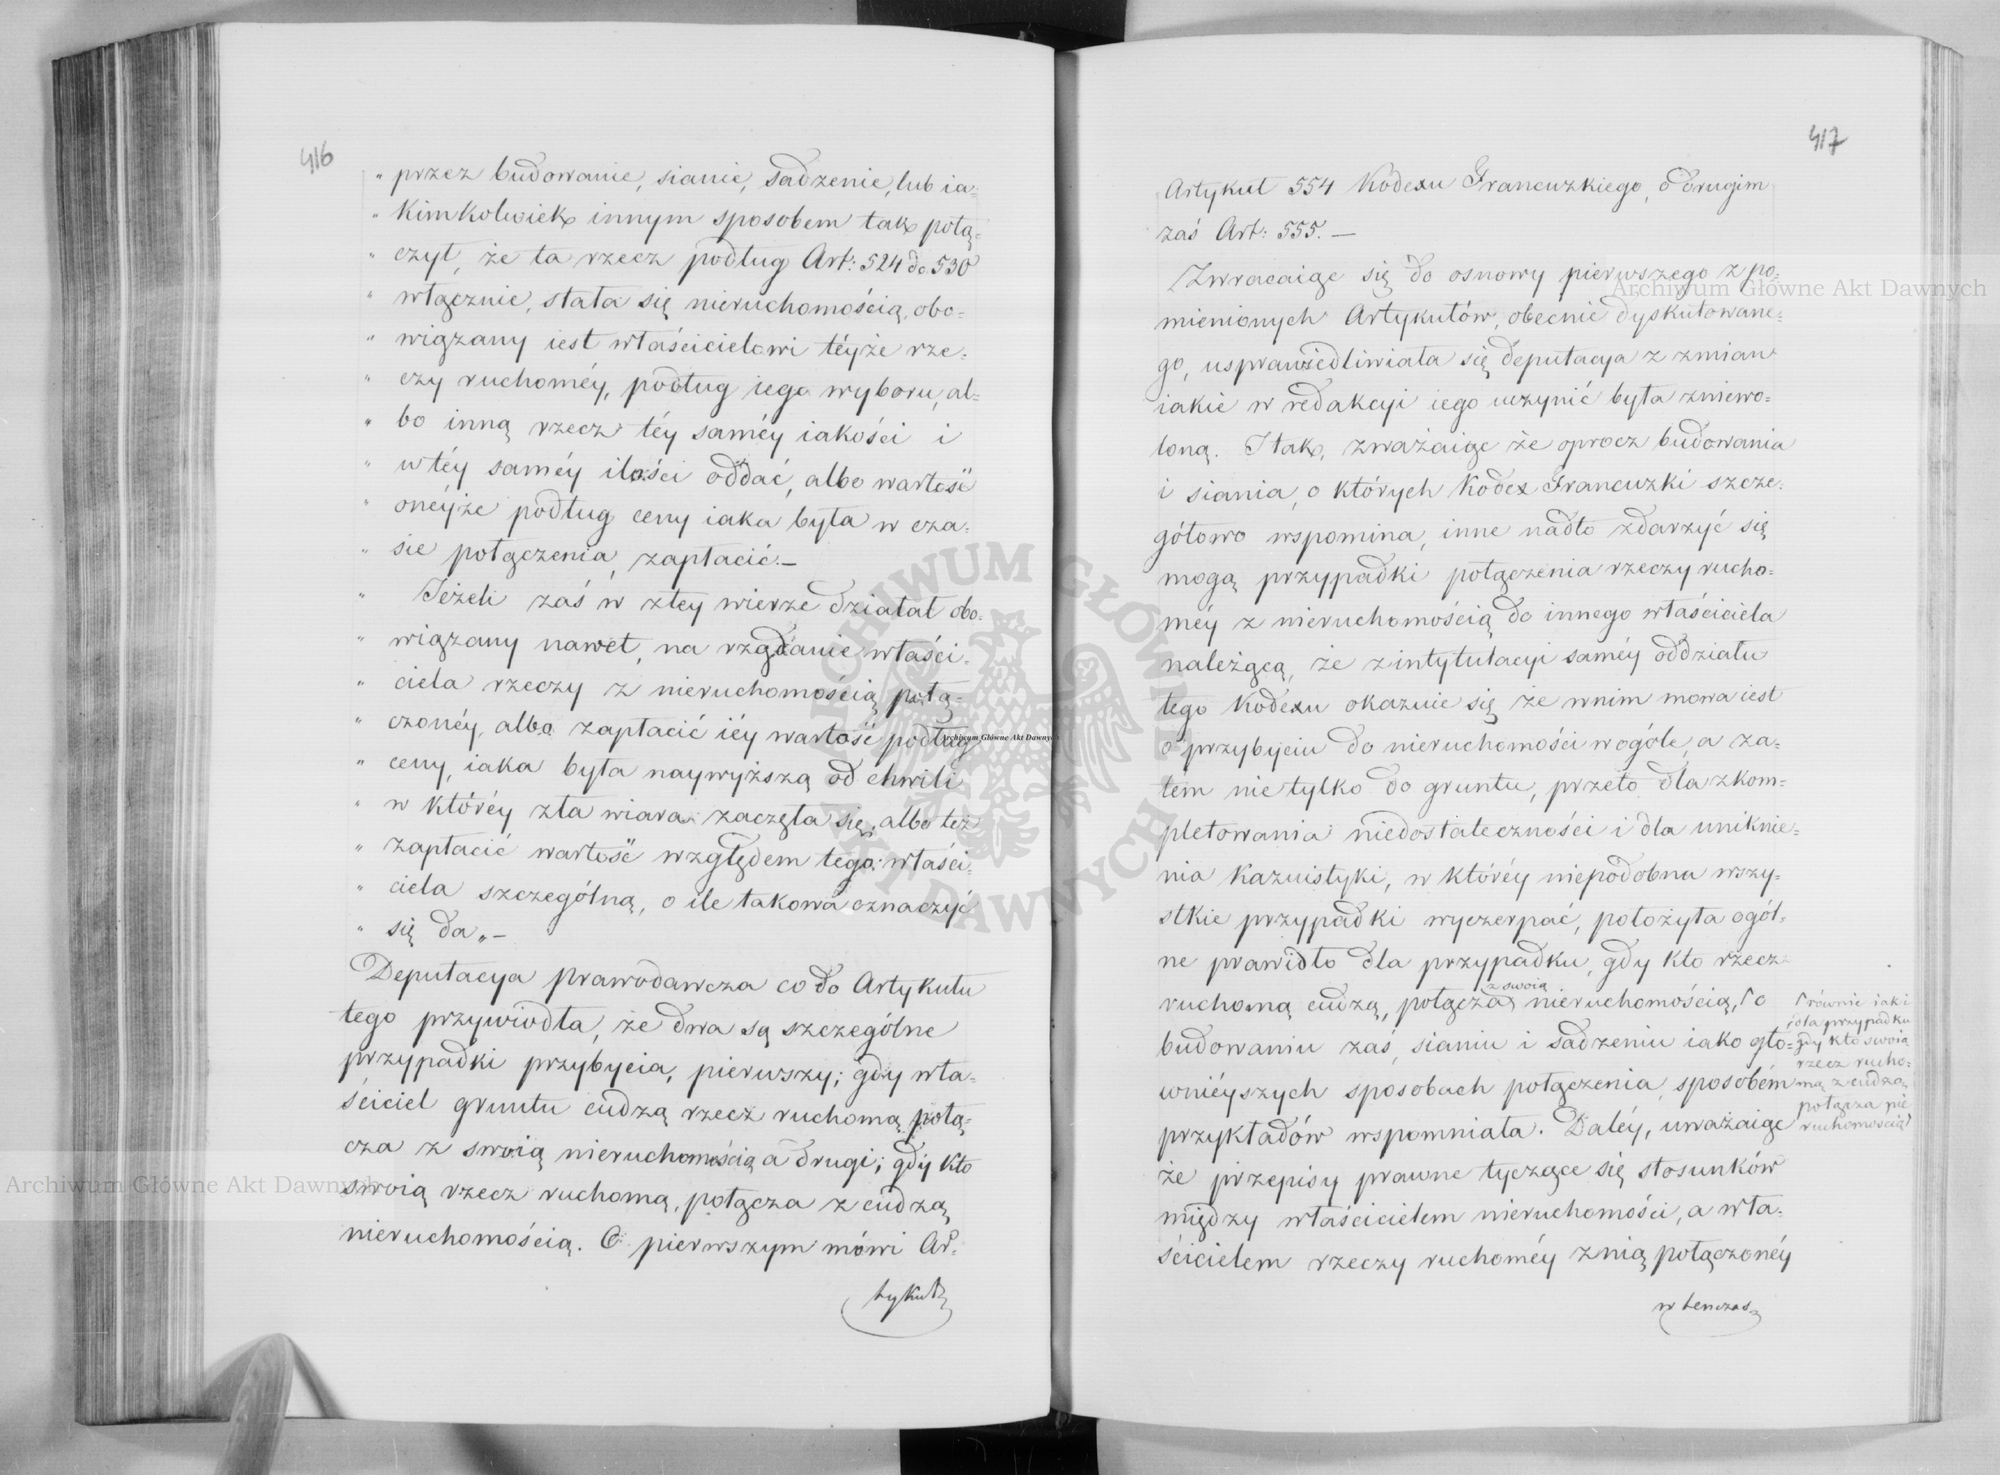 416
„ przez budowanie, sianie, sadzenie, lub ia-
„ kimkolwiek innym sposobem tak połą-
„ czył, że ta rzecz podług Art: 524 do 530
„ włącznie, stała się nieruchomością, obo-
„ wiązany iest właścicielowi téyże rze-
„ czy ruchoméy, podług iego wyboru, al-
„ bo inną rzecz téy saméy iakości i
„ w téy saméy ilości oddać, albo wartość
„ onéyże podług ceny iaka była w cza-
„ sie połączenia, zapłacić.—
„ Jeżeli zaś w złey wierze działał obo-
„ wiązany nawet, na rządanie właści-
„ ciela rzeczy z nieruchomością połą-
„ czonéy, albo zapłacić iéy wartość podług
„ ceny, iaka była naywyższą od chwili
„ w któréy zła wiara zaczęła się, albo też
„ zapłacić wartość względem tego właści-
„ ciela szczególną, o ile takowa oznaczyć
„ się da„—
Deputacya prawodawcza co do Artykułu
tego przywiodła, że dwa są szczególne
przypadki przybycia, pierwszy; gdy wła-
ściciel gruntu cudzą rzecz ruchomą połą-
cza z swoią nieruchomością a drugi; gdy kto
swoią rzecz ruchomą, połącza z cudzą
nieruchomością. O pierwszym mówi Ar-
tykuł
417
Artykuł 554 Kodexu Francuzkiego, o drugim
zaś Art: 555.—
Zwracaiąc się do osnowy pierwszego z po-
mienionych Artykułów, obecnie dyskutowane-
go, usprawiedliwiała się deputacya z zmian
iakie w redakcyi iego uczynić była zniewo-
loną. I tak, zważaiąc że oprocz budowania
i siania, o których Kodex Francuzki szcze-
gółowo wspomina, inne nadto zdarzyć się
mogą przypadki połączenia rzeczy rucho-
méy z nieruchomością do innego właściciela
należącą, że z intytulacyi saméy oddziału
tego Kodexu okazuie się że w nim mowa iest
o przybyciu do nieruchomości w ogóle, a za-
tém nie tylko do gruntu, przeto dla zkom-
pletowania niedostateczności i dla uniknie-
nia kazuistyki, w któréy niepodobna wszy-
stkie przypadki wyczerpać, położyła ogól-
ne prawidło dla przypadku, gdy kto rzecz
z swoią
ruchomą cudzą, połącza nieruchomością, Γ o
budowaniu zaś, sianiu i sadzeniu iako gło-
wniéyszych sposobach połączenia, sposobem
przykładów wspomniała. Daléy, uważaiąc
że przepisy prawne tyczące się stosunków
między właścicielem nieruchomości, a wła-
ścicielem rzeczy ruchoméy z nią połączonéy
Γ równie iak i
dla przypadku
gdy kto swoią
rzecz rucho-
mą z cudzą
połącza nie
ruchomością
wtenczas
Archiwum Główne Akt Dawnych
Archiwum Główne Akt Dawnych
Archiwum Główne Akt Dawnych
ARCHIWUM GŁÓWNE AKT DAWNYCH